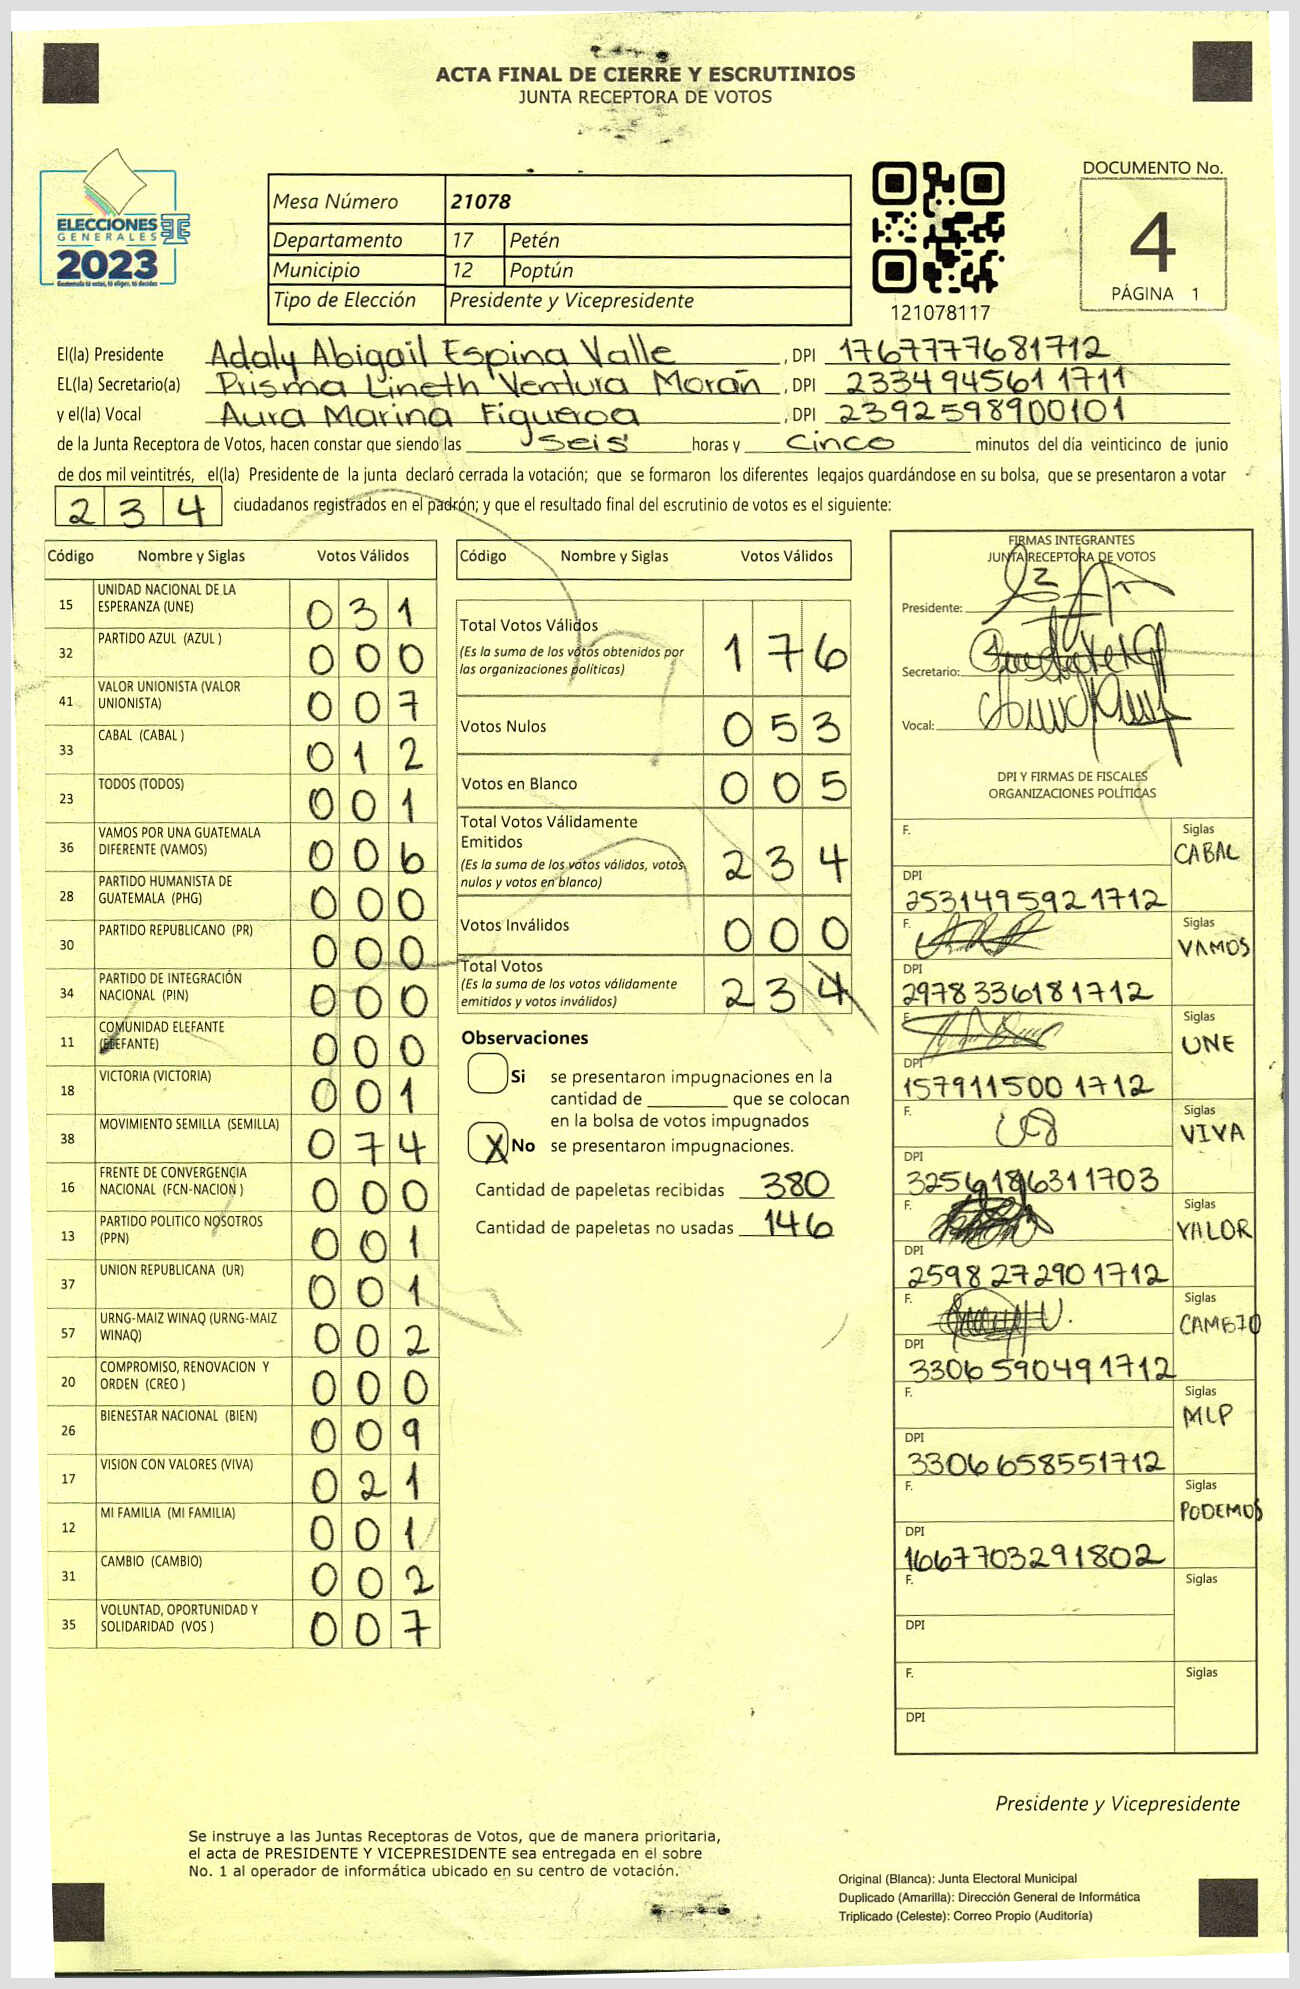 ACTA FINAL DE CIERRE Y ESCRUTINIOS
JUNTA RECEPTORA DE VOTOS
ELECCIONES
GENERALES
2023
Guatemala tú votas, tú eliges, tú decides
Mesa Número 21078
Departamento 17 Petén
Municipio 12 Poptún
Tipo de Elección Presidente y Vicepresidente
121078117
DOCUMENTO No.
4
PÁGINA 1
El(la) Presidente Adaly Abigail Espina Valle, DPI 1767777681712
EL(la) Secretario(a) Prisma Lineth Ventura Morán, DPI 2334945611711
y el(la) Vocal Aura Marina Figueroa, DPI 2392598900101
de la Junta Receptora de Votos, hacen constar que siendo las seis horas y cinco minutos del día veinticinco de junio
de dos mil veintitrés, el(la) Presidente de la junta declaró cerrada la votación; que se formaron los diferentes legajos guardándose en su bolsa, que se presentaron a votar
234 ciudadanos registrados en el padrón; y que el resultado final del escrutinio de votos es el siguiente:
Código Nombre y Siglas Votos Válidos
15 UNIDAD NACIONAL DE LA ESPERANZA (UNE) 031
32 PARTIDO AZUL (AZUL ) 000
41 VALOR UNIONISTA (VALOR UNIONISTA) 007
33 CABAL (CABAL ) 012
23 TODOS (TODOS) 001
36 VAMOS POR UNA GUATEMALA DIFERENTE (VAMOS) 006
28 PARTIDO HUMANISTA DE GUATEMALA (PHG) 000
30 PARTIDO REPUBLICANO (PR) 000
34 PARTIDO DE INTEGRACIÓN NACIONAL (PIN) 000
11 COMUNIDAD ELEFANTE (ELEFANTE) 000
18 VICTORIA (VICTORIA) 001
38 MOVIMIENTO SEMILLA (SEMILLA) 074
16 FRENTE DE CONVERGENCIA NACIONAL (FCN-NACION ) 000
13 PARTIDO POLITICO NOSOTROS (PPN) 001
37 UNION REPUBLICANA (UR) 001
57 URNG-MAIZ WINAQ (URNG-MAIZ WINAQ) 002
20 COMPROMISO, RENOVACION Y ORDEN (CREO ) 000
26 BIENESTAR NACIONAL (BIEN) 009
17 VISION CON VALORES (VIVA) 021
12 MI FAMILIA (MI FAMILIA) 001
31 CAMBIO (CAMBIO) 002
35 VOLUNTAD, OPORTUNIDAD Y SOLIDARIDAD (VOS ) 007
Código Nombre y Siglas Votos Válidos
Total Votos Válidos 176
(Es la suma de los votos obtenidos por
las organizaciones políticas)
Votos Nulos 053
Votos en Blanco 005
Total Votos Válidamente
Emitidos 234
(Es la suma de los votos válidos, votos
nulos y votos en blanco)
Votos Inválidos 000
Total Votos 234
(Es la suma de los votos válidamente
emitidos y votos inválidos)
Observaciones
Si se presentaron impugnaciones en la
cantidad de ________ que se colocan
en la bolsa de votos impugnados
X No se presentaron impugnaciones.
Cantidad de papeletas recibidas 380
Cantidad de papeletas no usadas 146
FIRMAS INTEGRANTES
JUNTA RECEPTORA DE VOTOS
Presidente:
Secretario:
Vocal:
DPI Y FIRMAS DE FISCALES
ORGANIZACIONES POLÍTICAS
F. Siglas CABAL
DPI 2531495921712
F. Siglas VAMOS
DPI 2978336181712
F. Siglas UNE
DPI 1579115001712
F. Siglas VIVA
DPI 3256186311703
F. Siglas VALOR
DPI 2598272901712
F. Siglas CAMBIO
DPI 3306590491712
F. Siglas MLP
DPI 3306658551712
F. Siglas PODEMOS
DPI 1667703291802
F. Siglas
DPI
F. Siglas
DPI
Presidente y Vicepresidente
Se instruye a las Juntas Receptoras de Votos, que de manera prioritaria,
el acta de PRESIDENTE Y VICEPRESIDENTE sea entregada en el sobre
No. 1 al operador de informática ubicado en su centro de votación.
Original (Blanca): Junta Electoral Municipal
Duplicado (Amarilla): Dirección General de Informática
Triplicado (Celeste): Correo Propio (Auditoría)